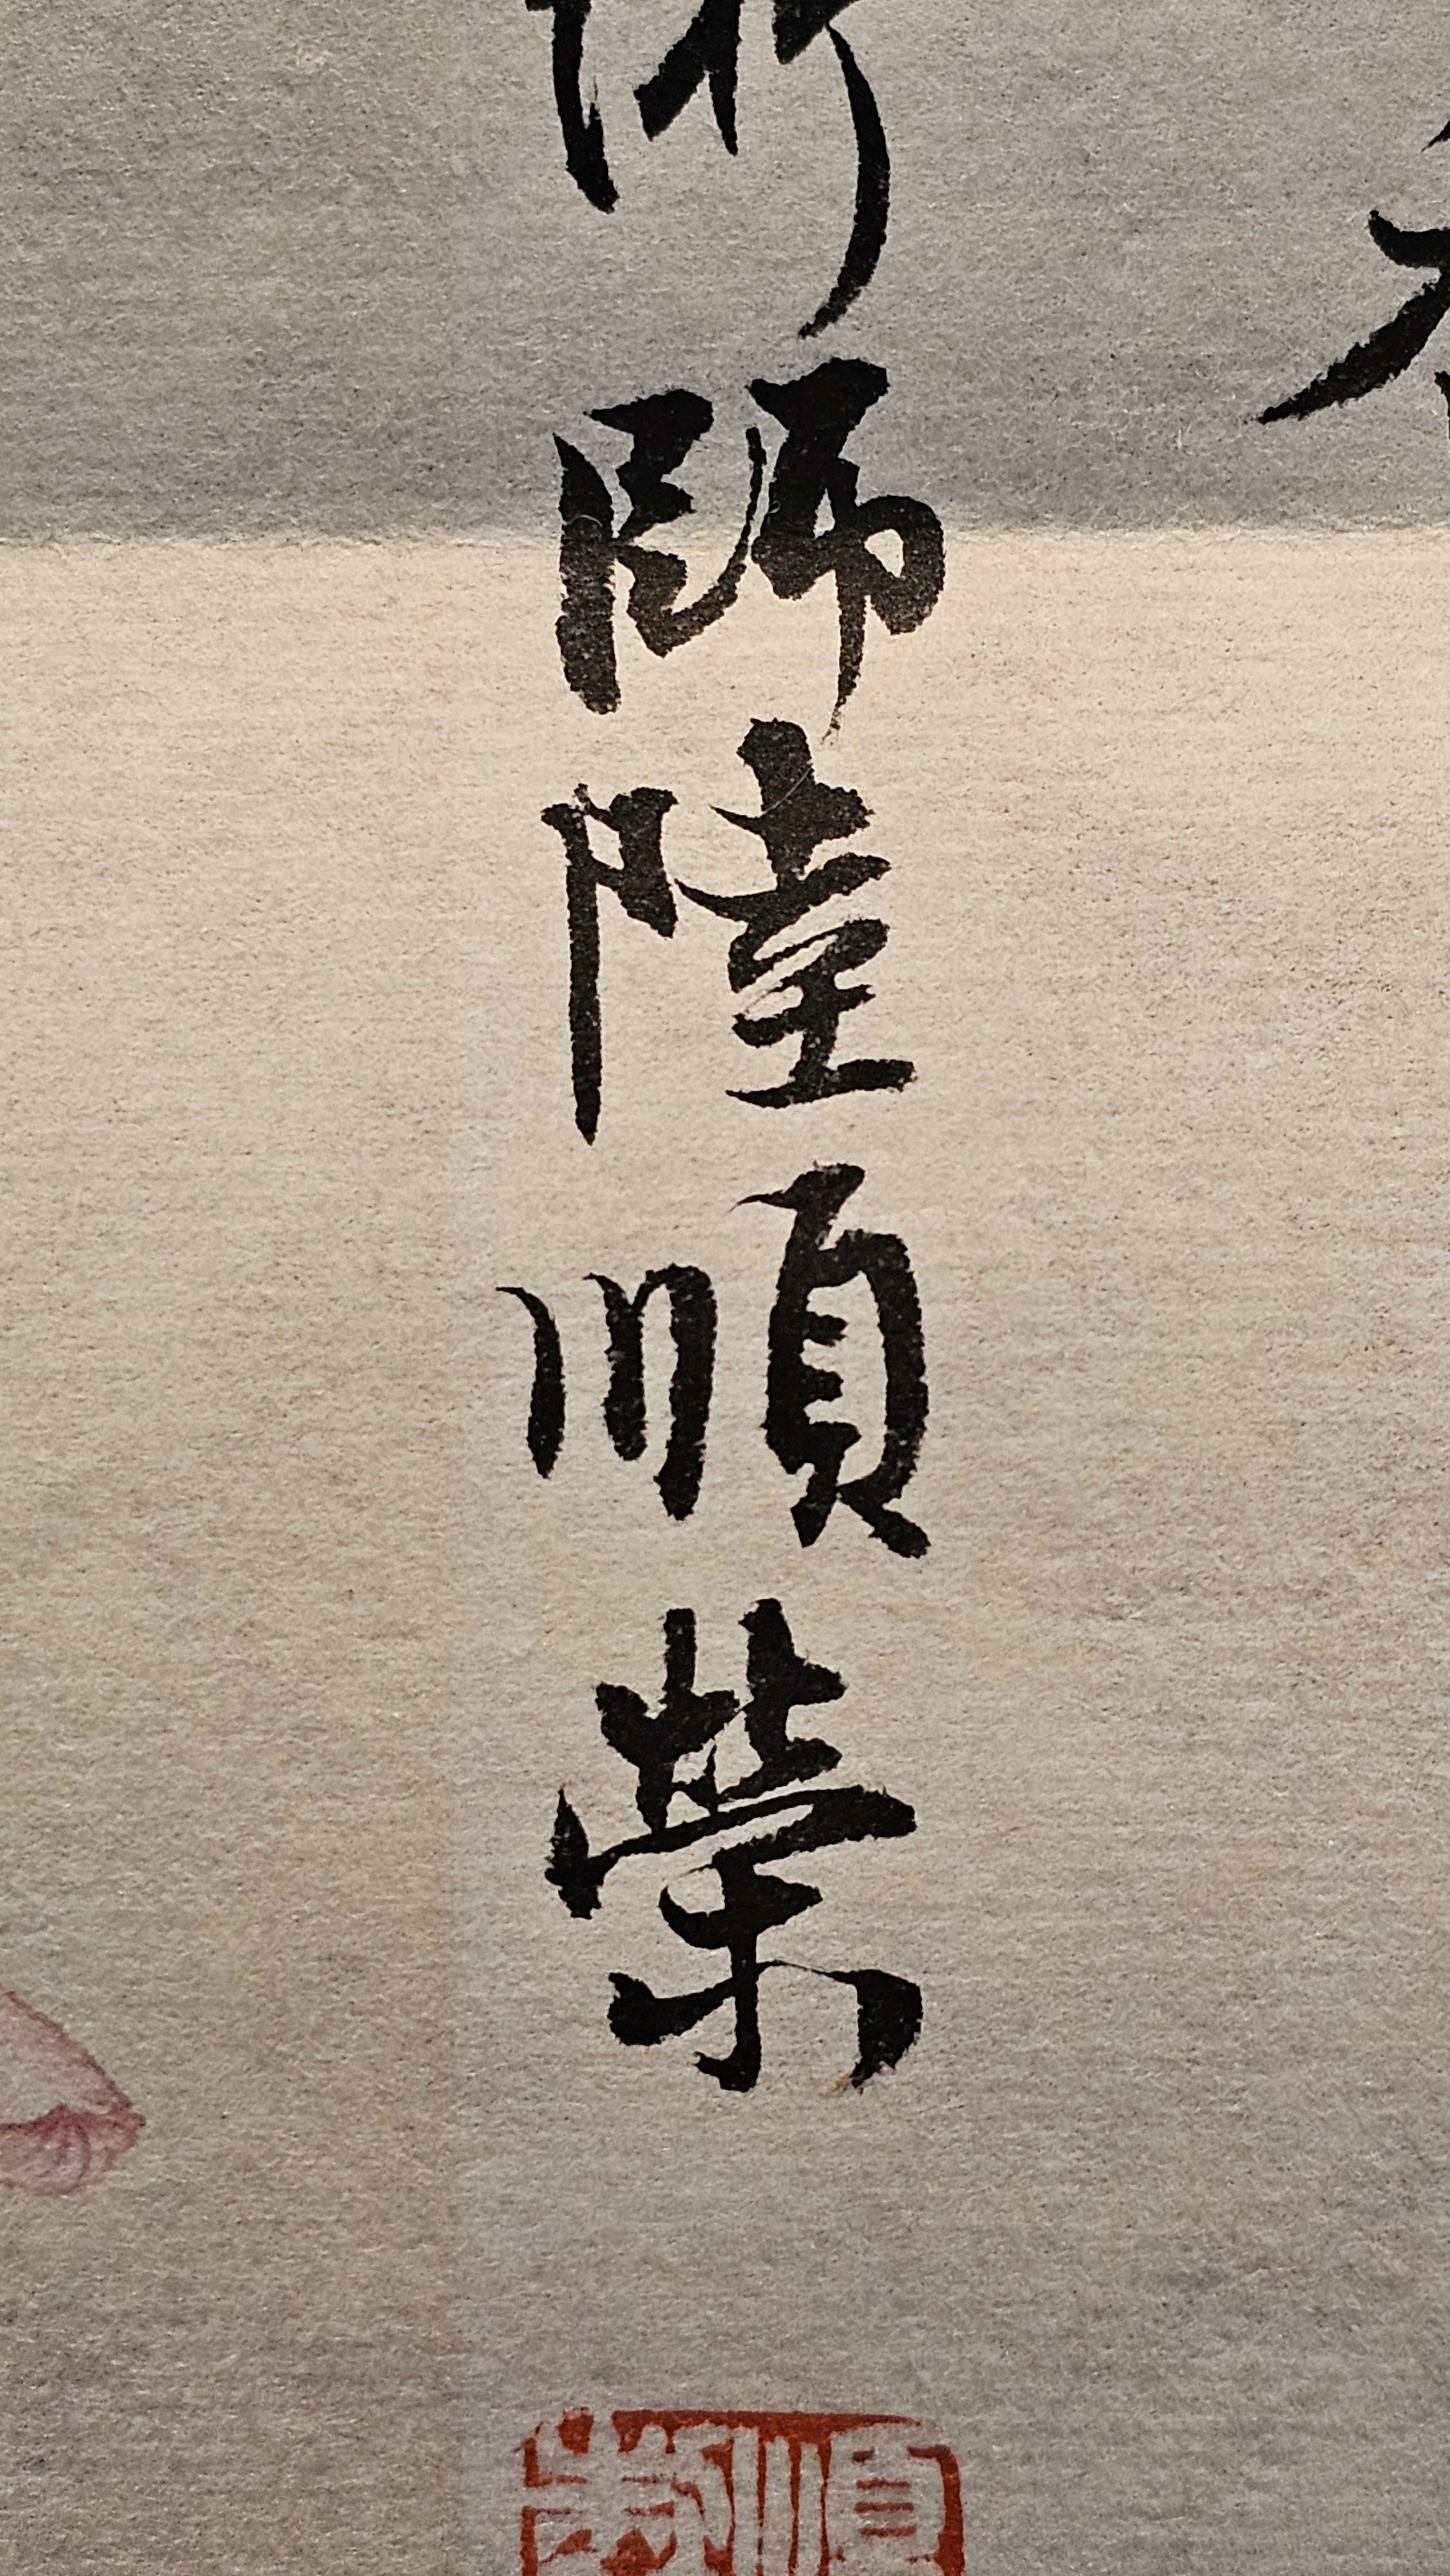 師陸順榮